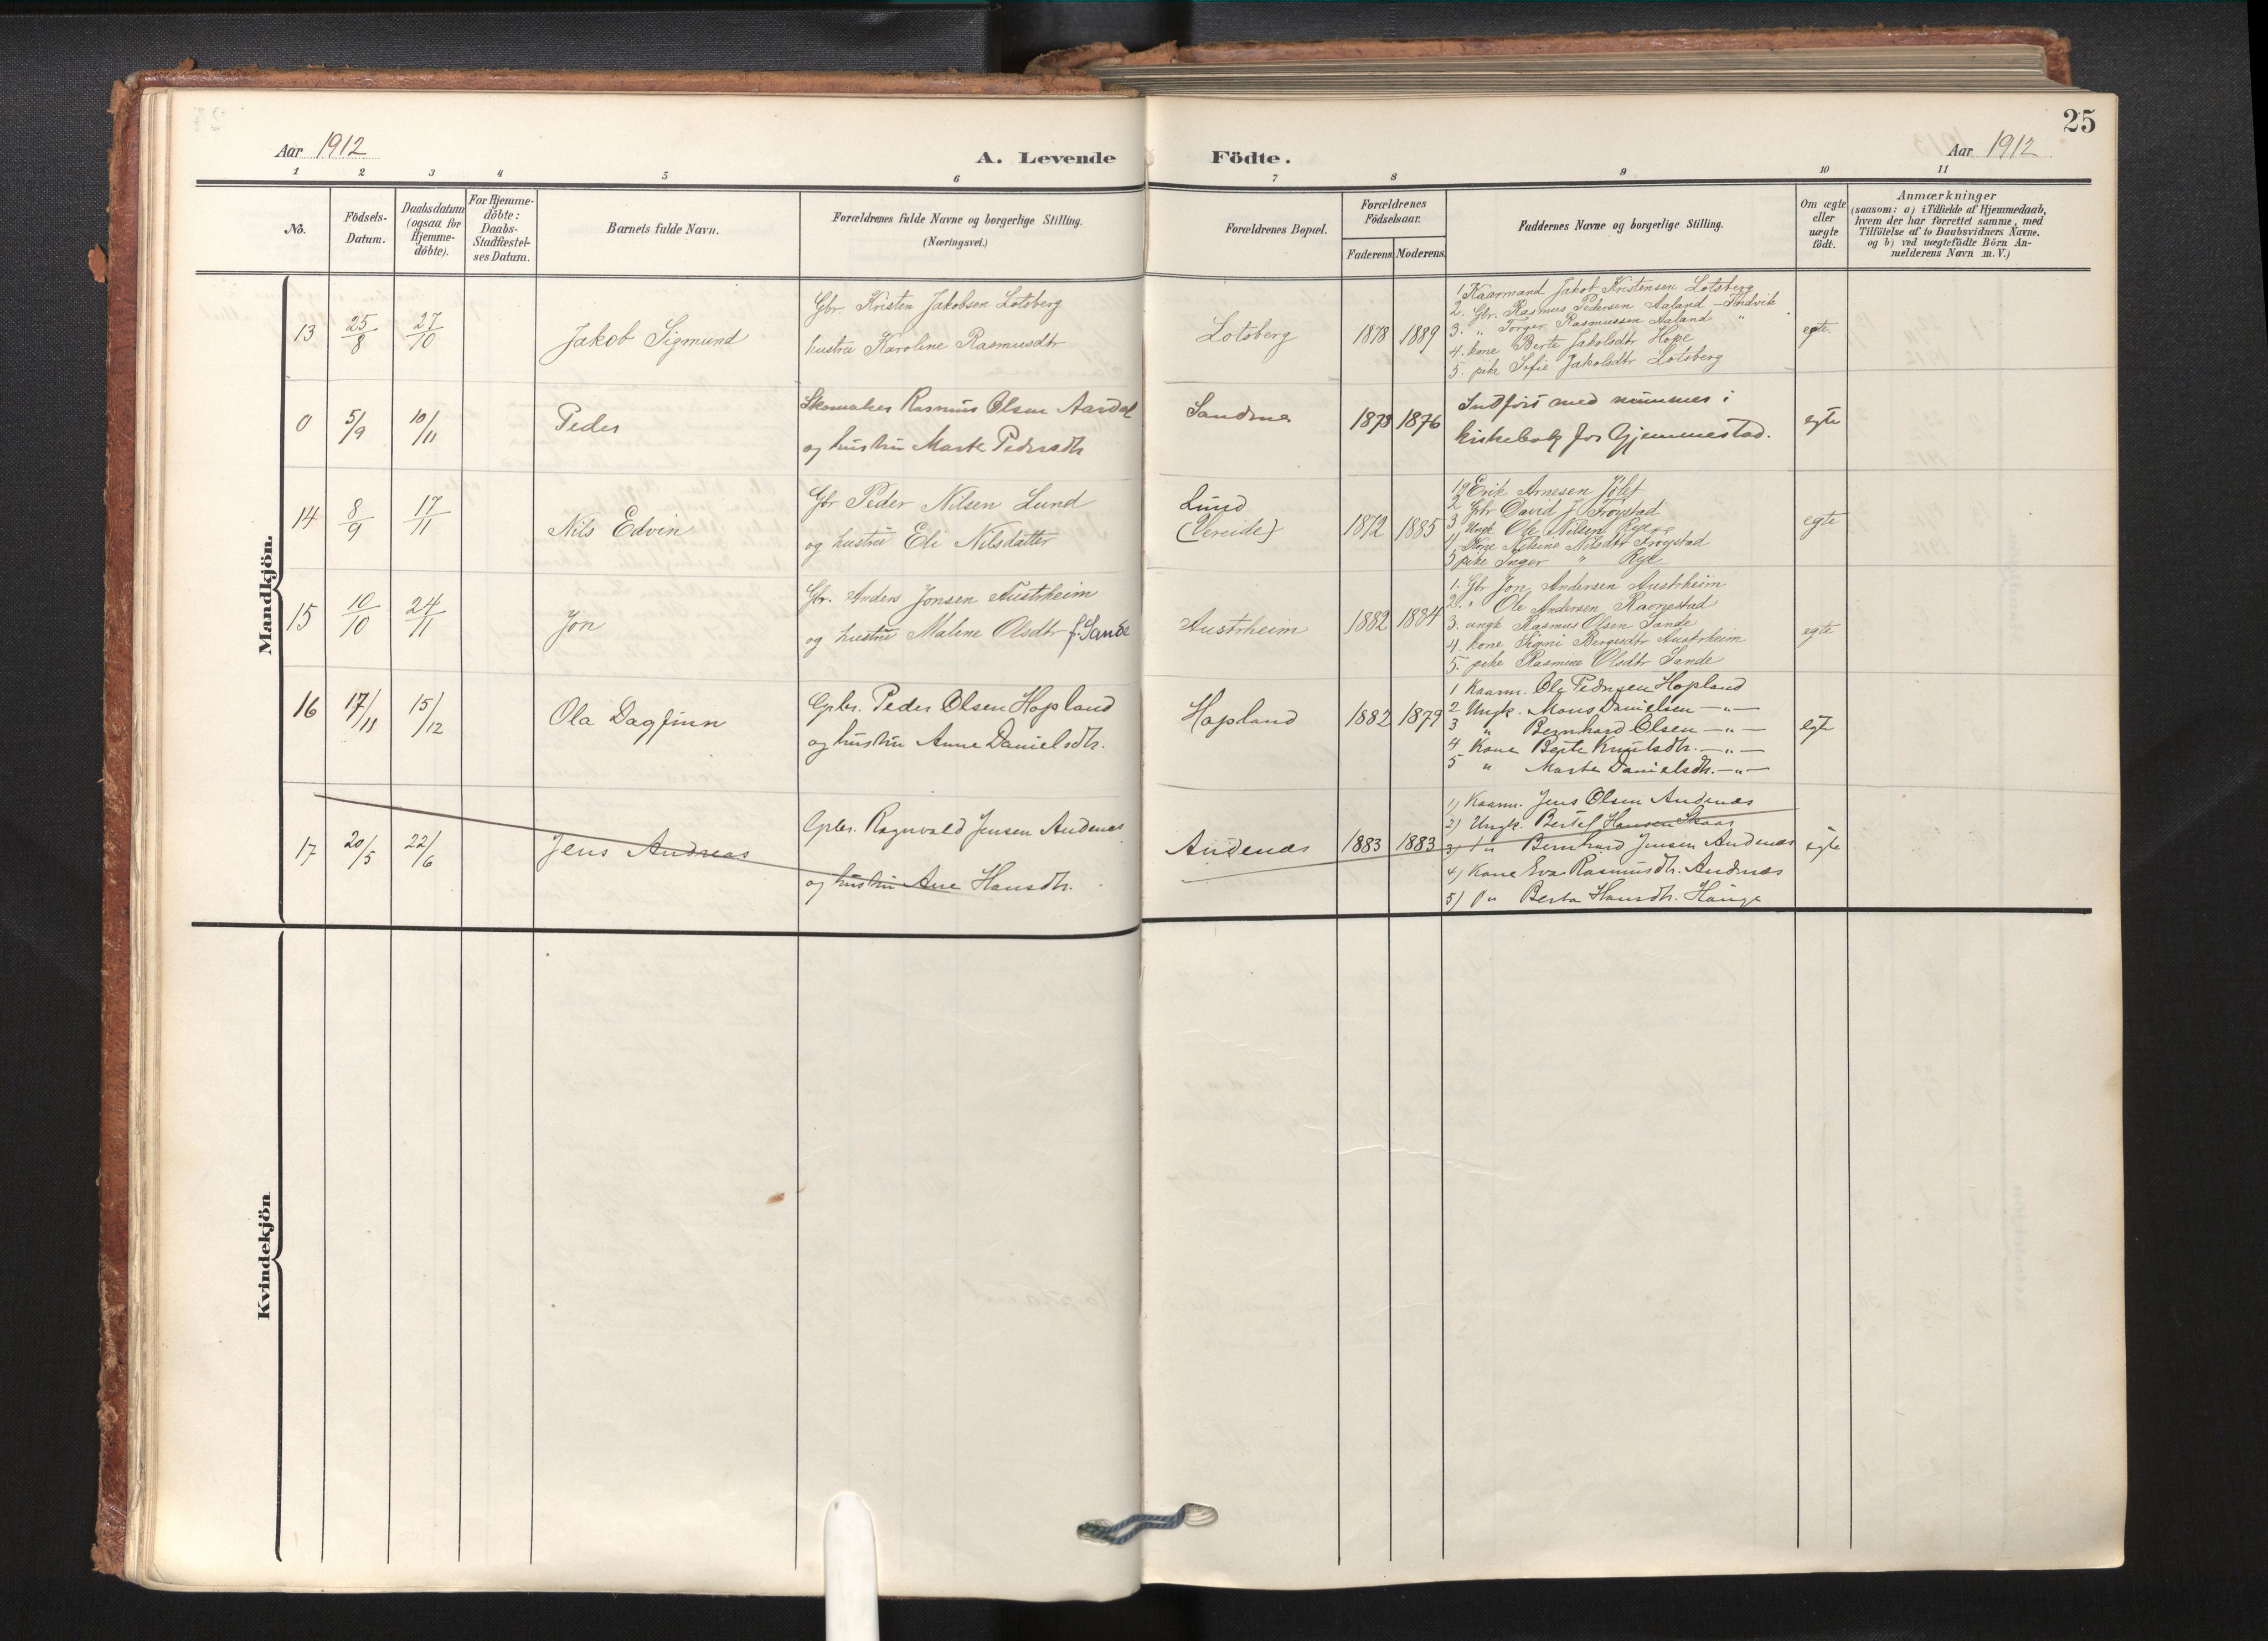 25
Aar 1912
A. Levende Födte.
Aar 1912
1 2 3 4 5 6 7 8 9 10 11
No.
Födsels-
Datum.
Daabsdatum
(ogsaa for
Hjemme-
döbte).
For Hjemme-
döbte:
Daabs-
Stadfæstel-
ses Datum.
Barnets fulde Navn.
Forældrenes fulde Navne og borgerlige Stilling.
(Næringsvei.)
Forældrenes Bopæl.
Forældrenes
Födselsaar.
Faderens. Moderens.
Faddernes Navne og borgerlige Stilling.
Om ægte
eller
uægte
födt.
Anmærkninger
(saasom: a) i Tilfælde af Hjemmedaab,
hvem der har forrettet samme, med
Tilföielse af to Daabsvidners Navne.
og b) ved uægtefödte Börn An-
melderens Navn m. V.)
Mandkjön.
13 25/8 27/10 Jakob Sigmund
Gbr Kristen Jakobsen Lotsberg
hustru Karoline Rasmusdtr
Lotsberg 1878 1889
1. Kaarmand Jakob Kristensen Lotsberg
2. Gbr. Rasmus Pedersen Aaland - Indvik
3. " Torger Rasmussen Aaland "
4. kone Berte Jakobsdtr Hope
5. pike Sofie Jakobsdtr Lotsberg
egte.
0 5/9 10/11 Peder
Skomaker Rasmus Olsen Aardal
og hustru Marte Pedersdtr
Sandene 1878 1876
Indført med nummer i
kirkebok for Gjemmestad.
egte
14 8/9 17/11 Nils Edvin
Gbr Peder Nilsen Lund
og hustru Eli Nilsdatter
Lund
(Vereide)
1872 1885
Erik Arnesen
2 Gbr David J. Frøystad
3 Ungk Ole Nilsen Ryge
4 Kone Nilsine Nilsdtr Frøystad
5 pike Inger " Ryge
egte
15 10/10 24/11 Jon
Gbr. Anders Jonsen Austrheim
og hustru Malene Olsdtr f. Sande
Austrheim 1882 1884
1. Gbr Jon Andersen Austrheim
2. " Ole Andersen Ravnestad
3. ungk Rasmus Olsen Sande
4. kone Signi Bergesdtr Austrheim
5. pike Rasmine Olsdtr Sande
egte
16 17/11 15/12 Ola Dagfinn
Gbr. Peder Olsen Hopland
og hustru Anne Danielsdtr.
Hopland 1882 1879
1 Kaarm. Ole Pedersen Hopland
2 Ungk. Mons Danielsen —"—
3 " Bernhard Olsen —"—
4 Kone Berte Knutsdtr. —"—
5 " Marte Danielsdtr. —"—
egte
17 20/5 22/6 Jens Andreas
Gbr. Ragnvald Jensen Andenæs
og hustru Ane Hansdtr.
Andenæs 1883 1883
1) Kaarm. Jens Olsen Andenæs
2) Ungk. Bertel Hansen Skaar
3) " Bernhard Jensen Andenæs
4) Kone Eva Rasmusdtr. Andenæs
5) " Berta Hansdtr. Hauge
egte
Kvindekjön